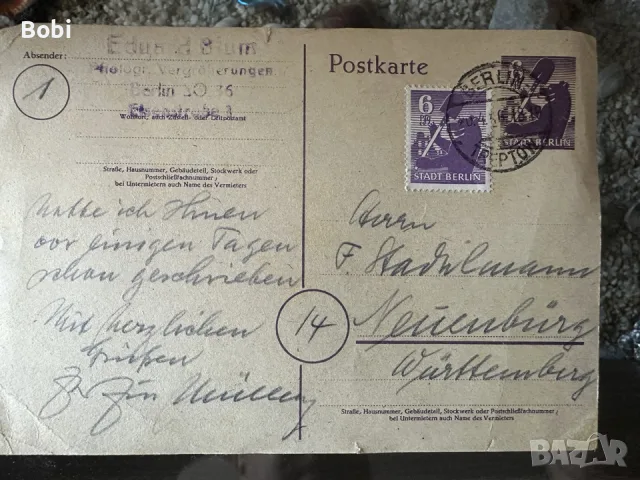 Bobi
Absender:
Eduard Blum
Photogr. Vergrößerungen
Berlin SO 36
Elsenstraße 3
Wohnort, auch Zustell- oder Leitpostamt
Straße, Hausnummer, Gebäudeteil, Stockwerk oder
Postschließfachnummer;
bei Untermietern auch Name des Vermieters
1
hatte ich Ihnen
vor einigen Tagen
schon geschrieben
Mit herzlichen
Grüßen
Müller
Postkarte
6
PFG
STADT BERLIN
6
STADT BERLIN
BERLIN
(TREPTOW)
14
Herrn
F. Stadelmann
Neuenbürg
Württemberg
Straße, Hausnummer, Gebäudeteil, Stockwerk oder Postschließfachnummer;
bei Untermietern auch Name des Vermieters
BAZAR